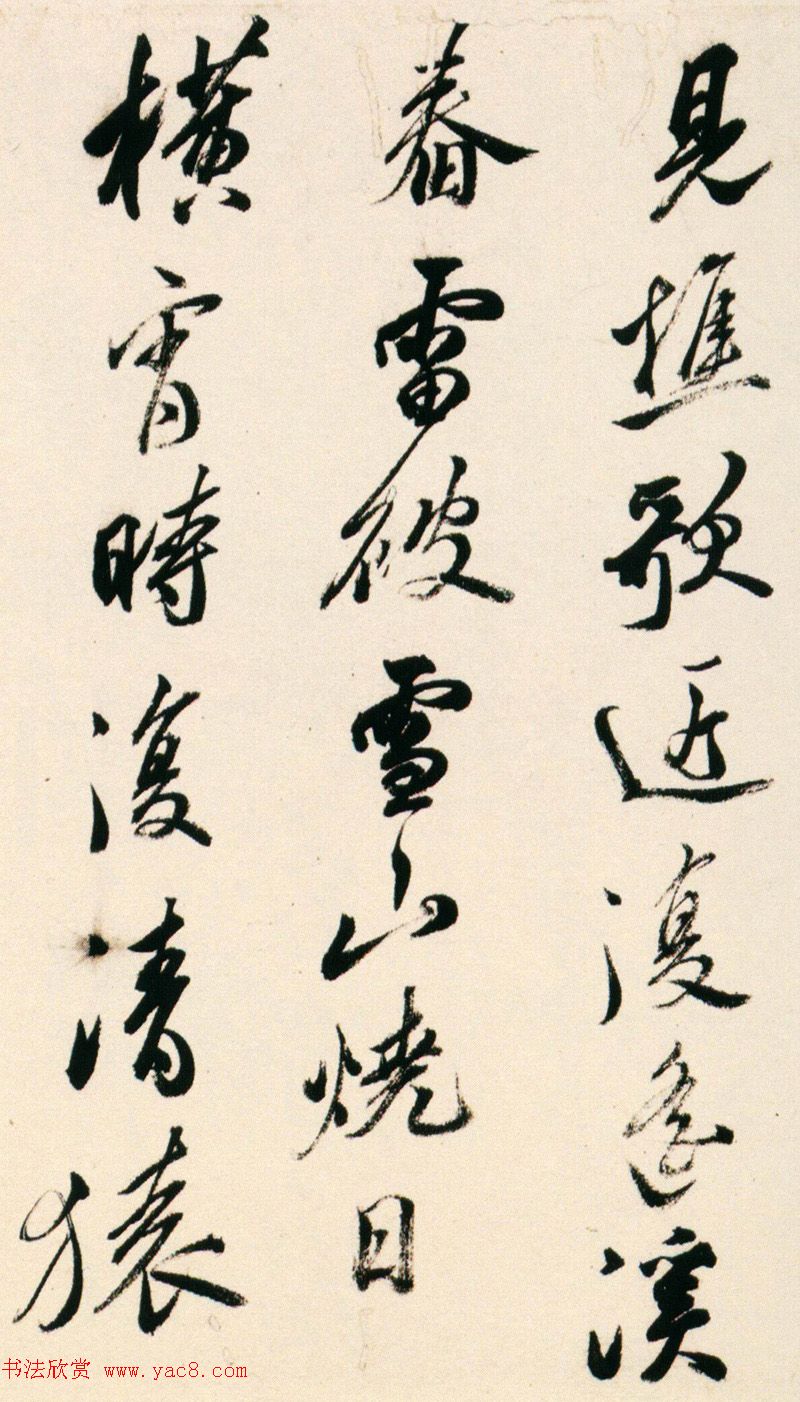 見樵歌近復遙溪
舂雷破雪山燒日
橫宵時復清猿
书法欣赏 www.yac8.com